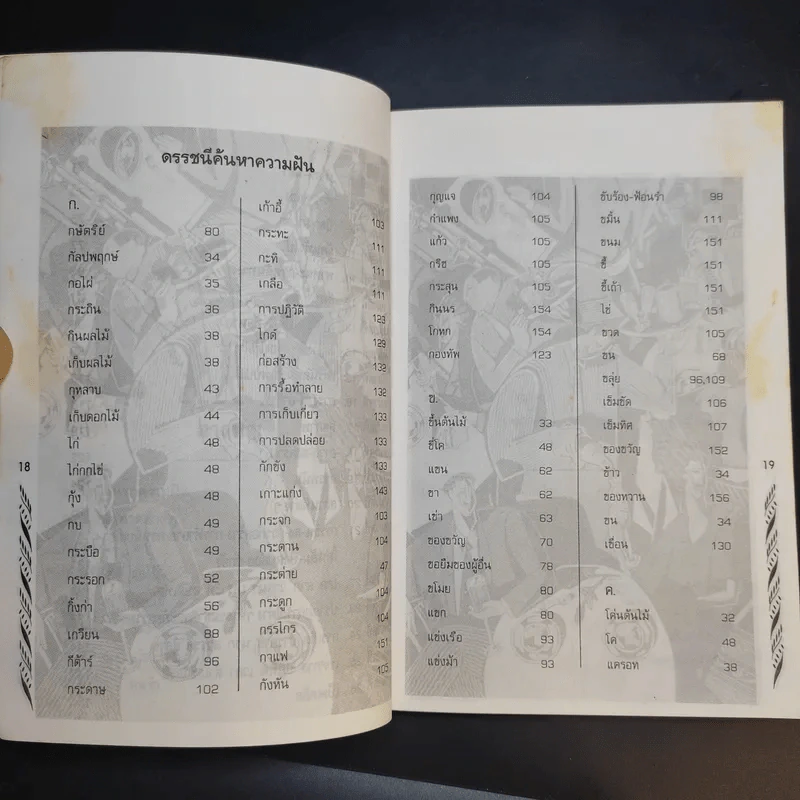 ดรรชนีค้นหาความฝัน
ก.
กษัตริย์ 80
กัลปพฤกษ์ 34
กอไผ่ 35
กระถิน 36
กินผลไม้ 38
เก็บผลไม้ 38
กุหลาบ 43
เก็บดอกไม้ 44
ไก่ 48
ไก่กกไข่ 48
กุ้ง 48
กบ 49
กระบือ 49
กระรอก 52
กิ้งก่า 56
เกวียน 88
กีต้าร์ 96
กระดาษ 102
เก้าอี้ 103
กระทะ 111
กะทิ 111
เกลือ 111
การปฏิวัติ 123
ไกด์ 129
ก่อสร้าง 132
การรื้อทำลาย 132
การเก็บเกี่ยว 133
การปลดปล่อย 133
กักขัง 133
เกาะแก่ง 143
กระจก 103
กระดาน 104
กระต่าย 47
กระดูก 104
กรรไกร 104
กาแฟ 151
กังหัน 105
18
กุญแจ 104
กำแพง 105
แก้ว 105
กรีช 105
กระสุน 105
กินนร 154
โกหก 154
กองทัพ 123
ข.
ขึ้นต้นไม้ 33
ขี่โค 48
แขน 62
ขา 62
เข่า 63
ของขวัญ 70
ขอยืมของผู้อื่น 78
ขโมย 80
แขก 80
แข่งเรือ 93
แข่งม้า 93
ขับร้อง-ฟ้อนรำ 98
ขมิ้น 111
ขนม 151
ขี้ 151
ขี้เถ้า 151
ไข่ 151
ขวด 105
ขน 68
ขลุ่ย 96,109
เข็มขัด 106
เข็มทิศ 107
ของขวัญ 152
ข้าว 34
ของหวาน 156
ขน 34
เขื่อน 130
ค.
โค่นต้นไม้ 32
โค 48
แครอท 38
19